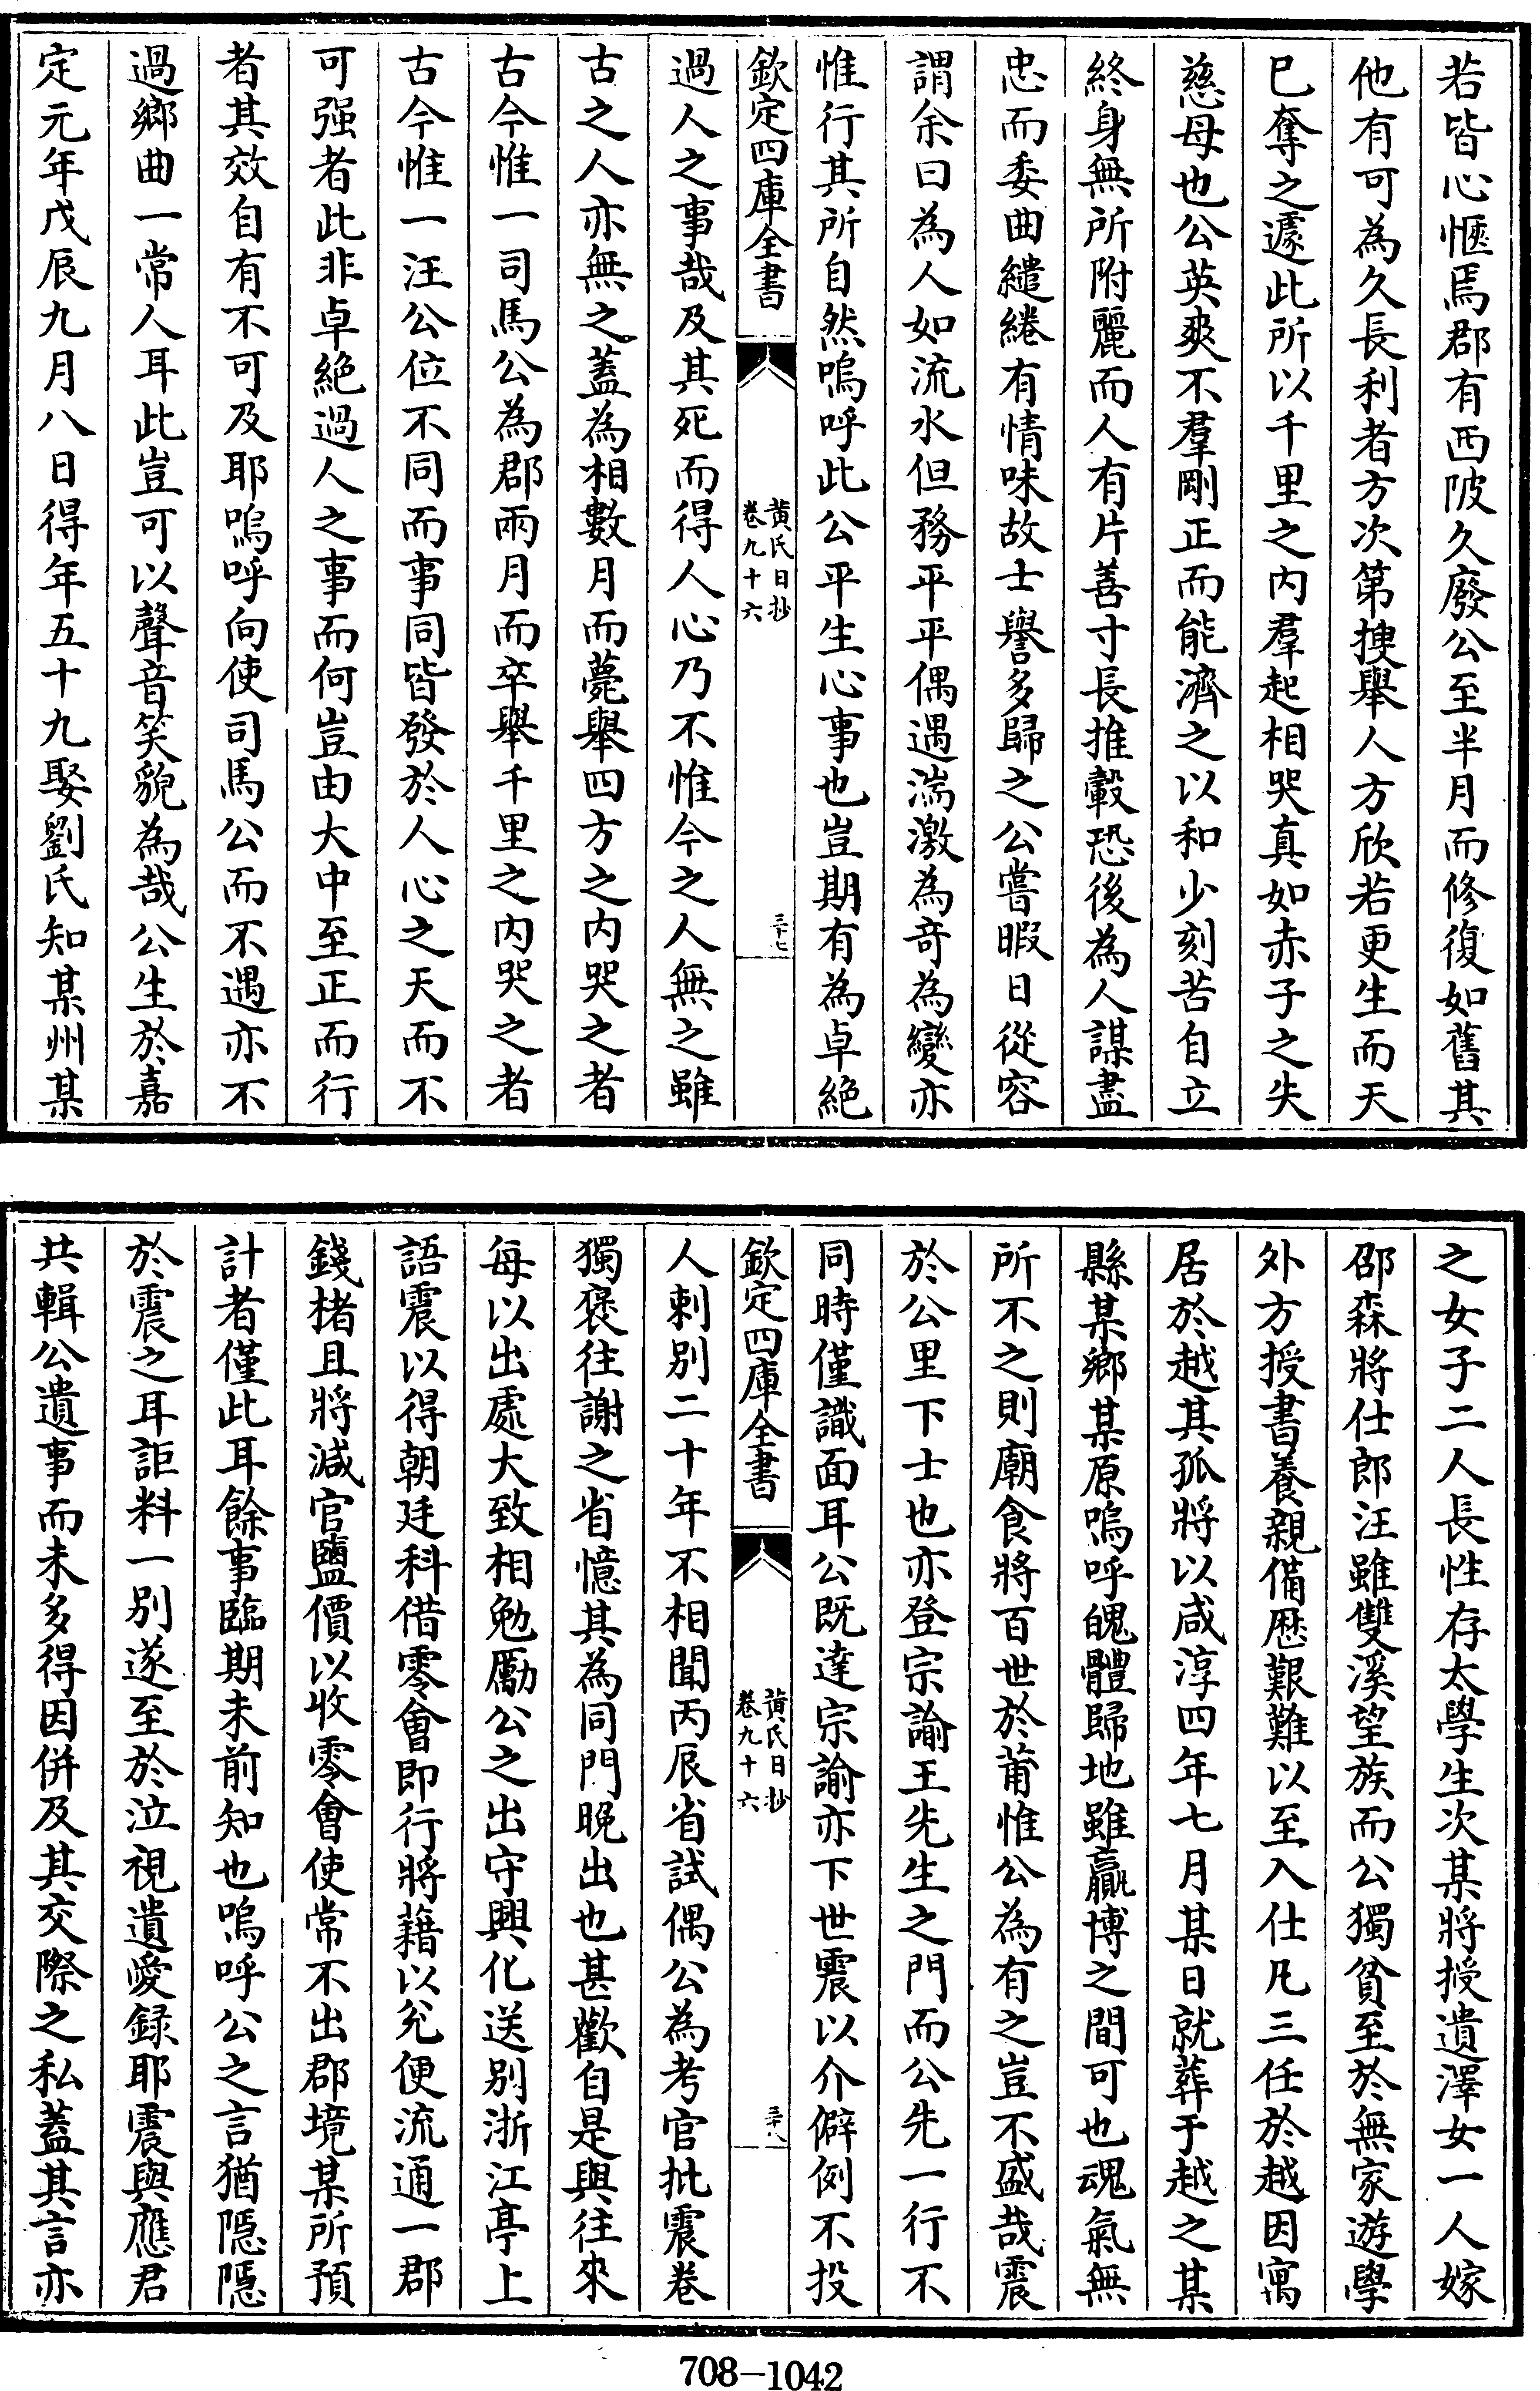 若皆心愜焉郡有西陂久廢公至半月而修復如舊其
他有可為久長利者方次第搜舉人方欣若更生而天
已奪之遽此所以千里之内羣起相哭真如赤子之失
慈母也公英爽不羣剛正而能濟之以和少刻苦自立
終身無所附麗而人有片善寸長推轂恐後為人謀盡
忠而委曲繾綣有情味故士譽多歸之公嘗暇日從容
謂余曰為人如流水但務平平偶遇湍激為奇為變亦
惟行其所自然嗚呼此公平生心事也豈期有為卓絶
欽定四庫全書
黄氏日抄
卷九十六
三十七
過人之事哉及其死而得人心乃不惟今之人無之雖
古之人亦無之蓋為相數月而薨舉四方之内哭之者
古今惟一司馬公為郡兩月而卒舉千里之内哭之者
古今惟一汪公位不同而事同皆發於人心之天而不
可强者此非卓絶過人之事而何豈由大中至正而行
者其效自有不可及耶嗚呼向使司馬公而不遇亦不
過鄉曲一常人耳此豈可以聲音笑貌為哉公生於嘉
定元年戊辰九月八日得年五十九娶劉氏知某州某
之女子二人長性存太學生次某將授遺澤女一人嫁
邵森將仕郎汪雖雙溪望族而公獨貧至於無家遊學
外方授書養親備歷艱難以至入仕凡三任於越因寓
居於越其孤將以咸淳四年七月某日就葬于越之某
縣某鄉某原嗚呼魄體歸地雖嬴博之間可也魂氣無
所不之則廟食將百世於莆惟公為有之豈不盛哉震
於公里下士也亦登宗諭王先生之門而公先一行不
同時僅識面耳公既達宗諭亦下世震以介僻例不投
欽定四庫全書
黄氏日抄
卷九十六
三十八
人刺别二十年不相聞丙辰省試偶公為考官批震卷
獨襃往謝之省憶其為同門晚出也甚歡自是與往來
每以出處大致相勉勵公之出守興化送别浙江亭上
語震以得朝廷科借零會即行將藉以兊便流通一郡
錢楮且將減官鹽價以收零會使常不出郡境某所預
計者僅此耳餘事臨期未前知也嗚呼公之言猶隱隱
於震之耳詎料一别遂至於泣視遺愛録耶震與應君
共輯公遺事而未多得因併及其交際之私蓋其言亦
708-1042